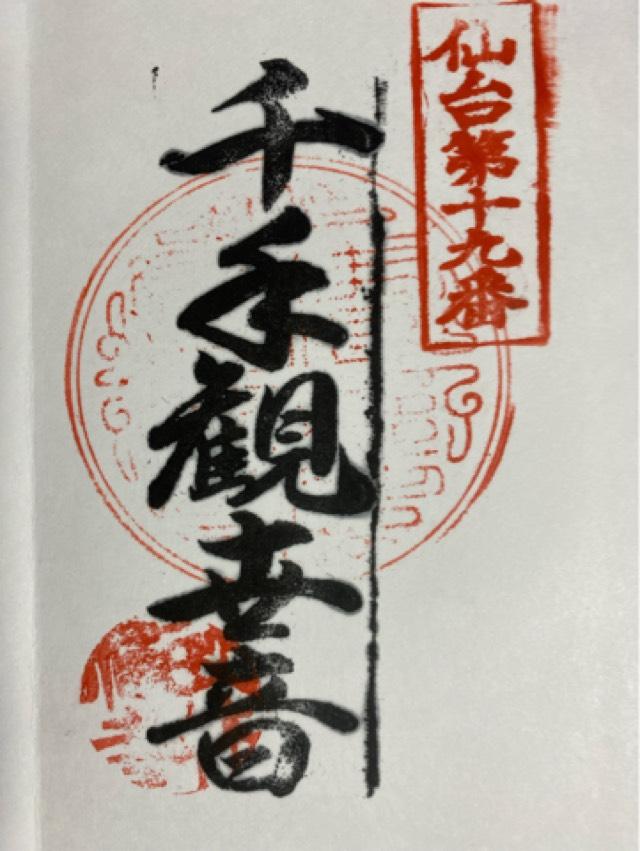 仙台第十九番
千手観世音